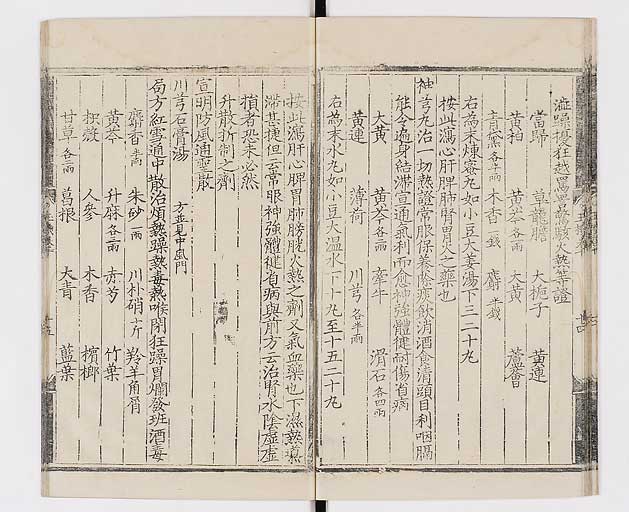 澁躁擾狂越罵詈驚駭火熱等證
當歸 草龍膽 大梔子 黃連
黃栢 黃芩各一兩 大黃 蘆薈
青黛各半兩 木香一錢 麝半錢
右為末煉蜜丸如小豆大姜湯下三二十丸
按此瀉心肝脾肺腎胃火之藥也
神芎丸治一切熱證常服保養除痰飲消酒食清頭目利咽膈
能令遍身結滯宣通氣利而愈神強體健耐傷省病
大黃 黃芩各二兩 牽牛 滑石各四兩
黃連 薄荷 川芎各半兩
右為末水丸如小豆大溫水下十丸至十五二十丸
按此瀉肝心脾胃肺膀胱火熱之劑又氣血藥也下濕熱熏
滯甚捷但云常服神強體健省病與前方云治腎水陰虛虛
損者恐未必然
升散折制之劑
宣明防風通聖散
川芎石膏湯 方並見中風門
局方紅雪通中散治煩熱躁熱毒熱喉閉狂躁胃爛發斑酒毒
麝香半兩 朱砂一兩 川朴硝十斤 羚羊角屑
黃芩 升麻各三兩 赤芍 竹葉
枳殼 人參 木香 檳榔
甘草各二兩 葛根 大青 藍葉